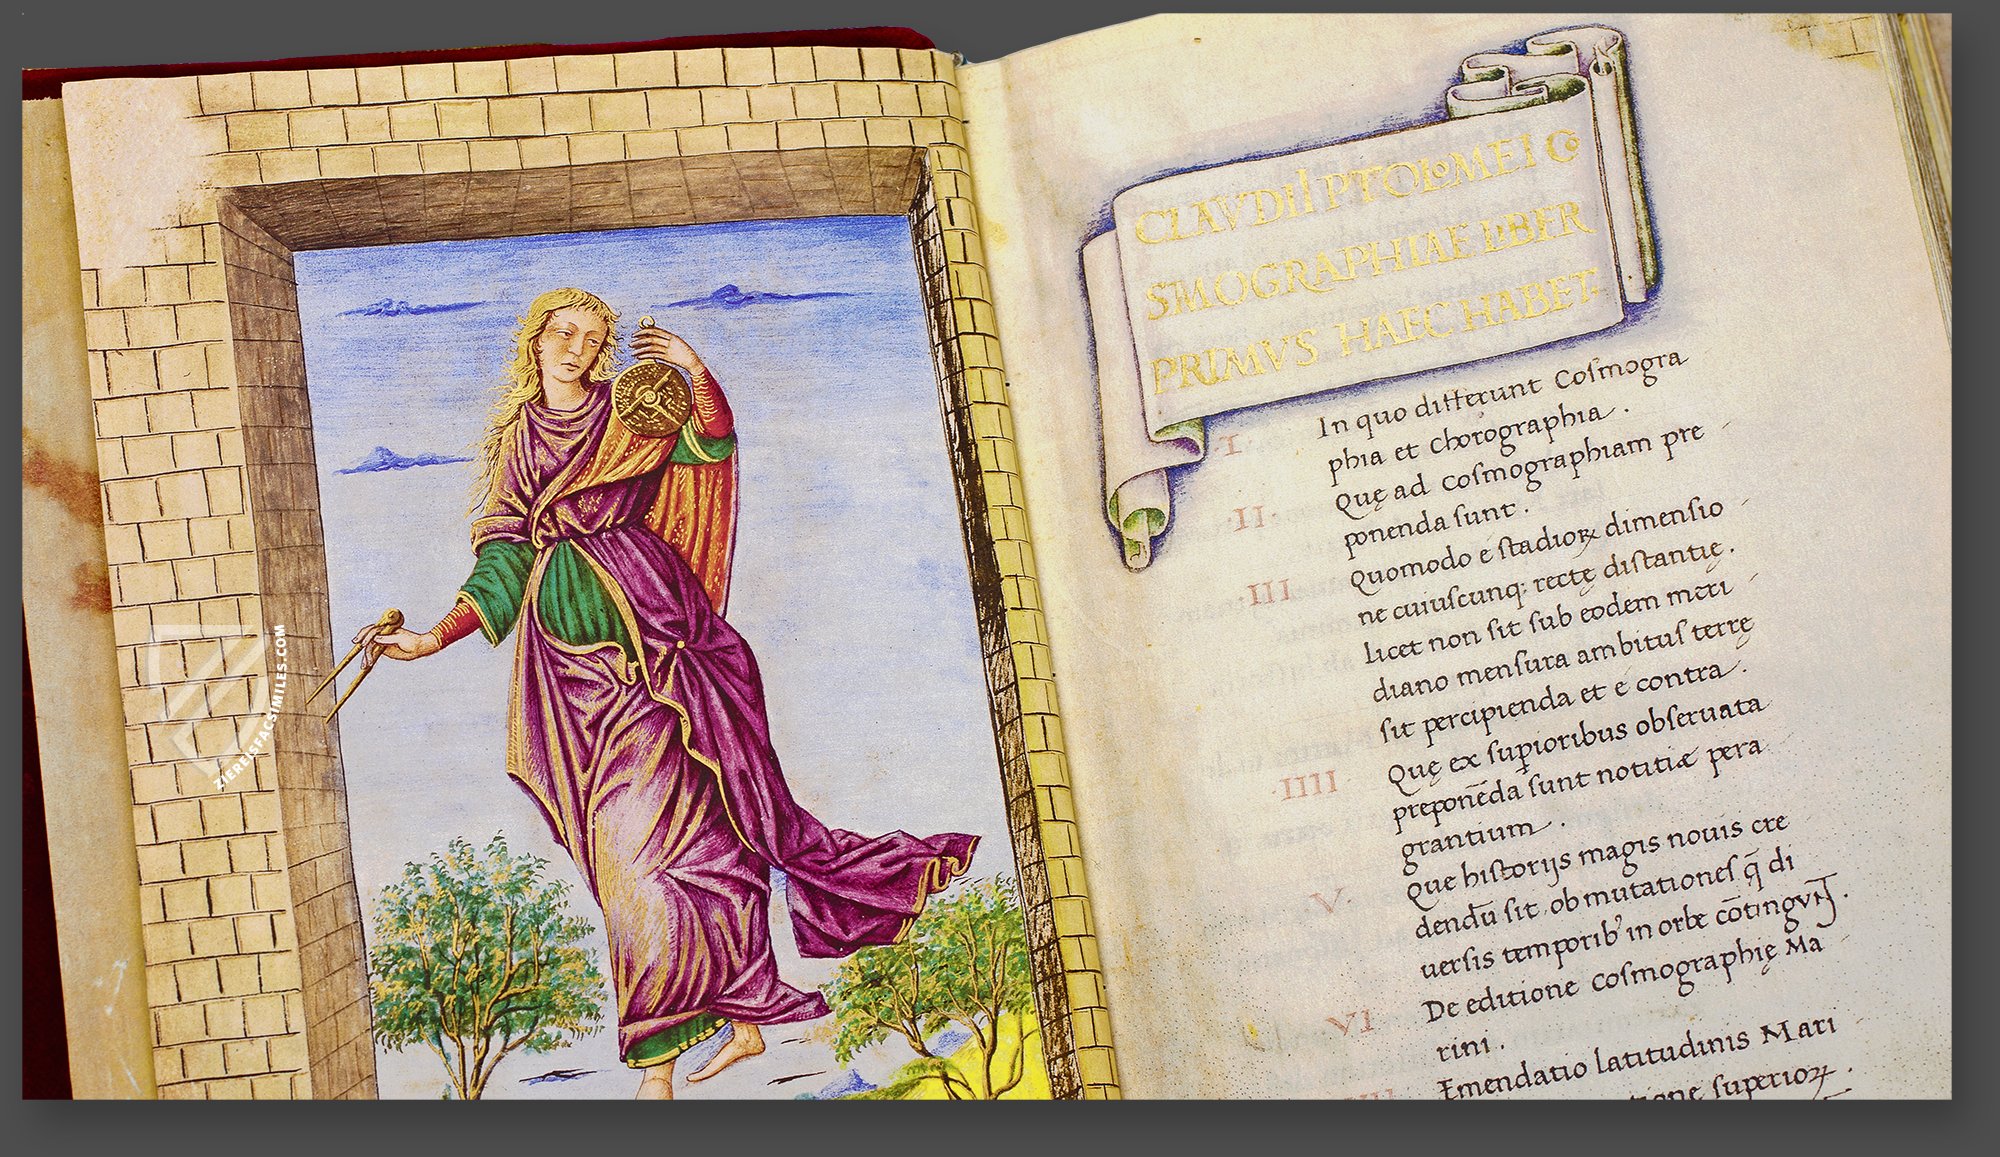 ZIEREISFACSIMILES.COM
CLAVDII PTOLOMEI CO
SMOGRAPHIAE LIBER
PRIMVS HAEC HABET.
·I· In quo differunt Cosmogra
phia et Chorographia.
·II· Quę ad Cosmographiam pre
ponenda sunt.
·III· Quomodo e stadioꝝ dimensio
ne cuiuscunqꝫ rectę distantię.
licet non sit sub eodem meri
diano mensura ambitus terrę
sit percipienda et e contra.
·IIII· Quę ex supioribus obseruata
preponēda sunt notitiæ pera
grantium.
V· Que historijs magis nouis cre
dendū sit ob mutationes q̄ di
uersis temporib' in orbe cōtingVNT.
VI De editione cosmographię Ma
rini.
VII Emendatio latitudinis Mari
one superioꝝ.